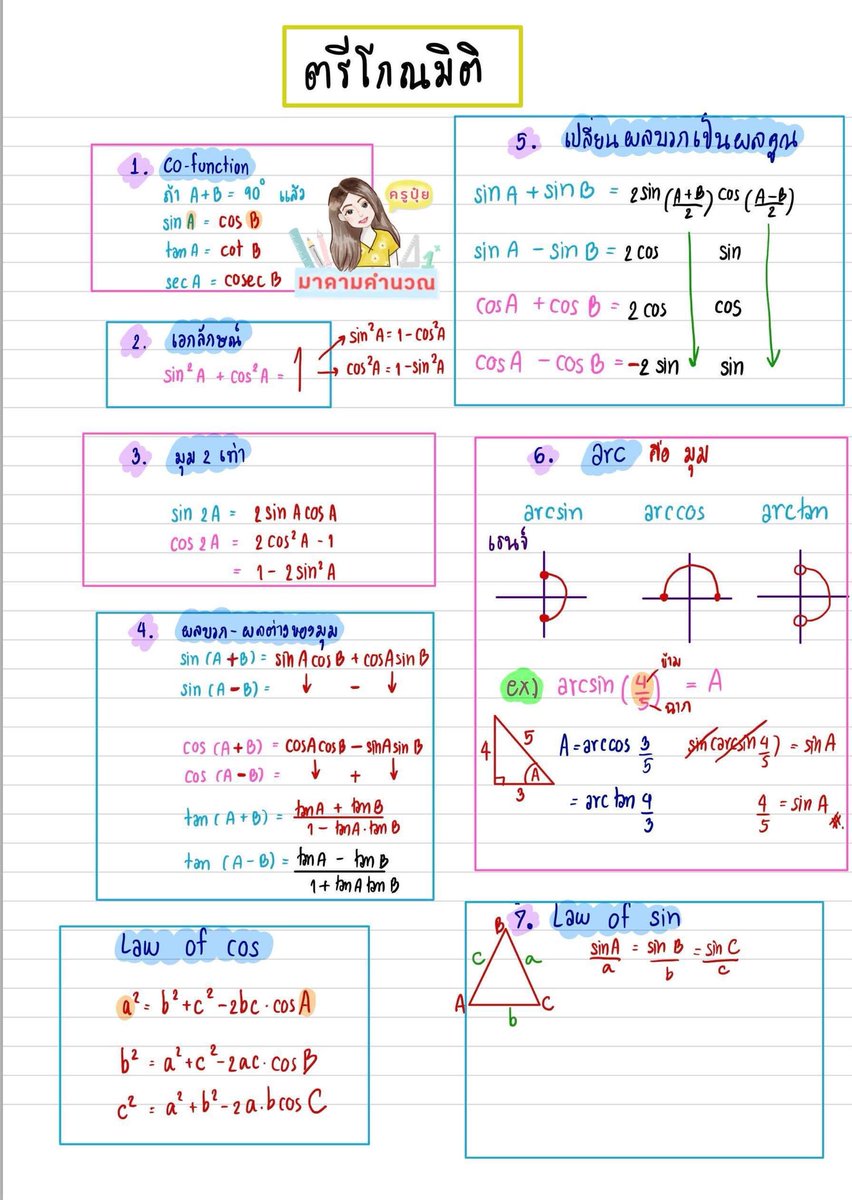 ตรีโกณมิติ
1. Co-function
ถ้า A+B = 90° แล้ว
sin A = cos B
tan A = cot B
sec A = cosec B
ครูปุ๋ย
มาคามคำนวณ
2. เอกลักษณ์
sin²A + cos²A = 1
sin²A = 1 - cos²A
cos²A = 1 - sin²A
3. มุม 2 เท่า
sin 2A = 2 sin A cos A
cos 2A = 2 cos²A - 1
= 1 - 2 sin²A
4. ผลบวก - ผลต่างของมุม
sin (A+B) = sin A cos B + cos A sin B
sin (A-B) = ↓ - ↓
cos (A+B) = cos A cos B - sin A sin B
cos (A-B) = ↓ + ↓
tan (A+B) = (tan A + tan B)/(1 - tan A · tan B)
tan (A-B) = (tan A - tan B)/(1 + tan A tan B)
Law of cos
a² = b² + c² - 2bc · cos A
b² = a² + c² - 2ac · cos B
c² = a² + b² - 2a.b cos C
5. เปลี่ยนผลบวกเป็นผลคูณ
sin A + sin B = 2 sin ((A+B)/2) cos ((A-B)/2)
sin A - sin B = 2 cos sin
cos A + cos B = 2 cos cos
cos A - cos B = -2 sin sin
6. arc คือ มุม
arcsin arccos arctan
เรนจ์
ex) arcsin (4/5) = A
ข้าม
ฉาก
4 5 3 A
A = arccos 3/5
= arctan 4/3
sin(arcsin 4/5) = sin A
4/5 = sin A
7. Law of sin
B
c a
A C
b
sin A/a = sin B/b = sin C/c